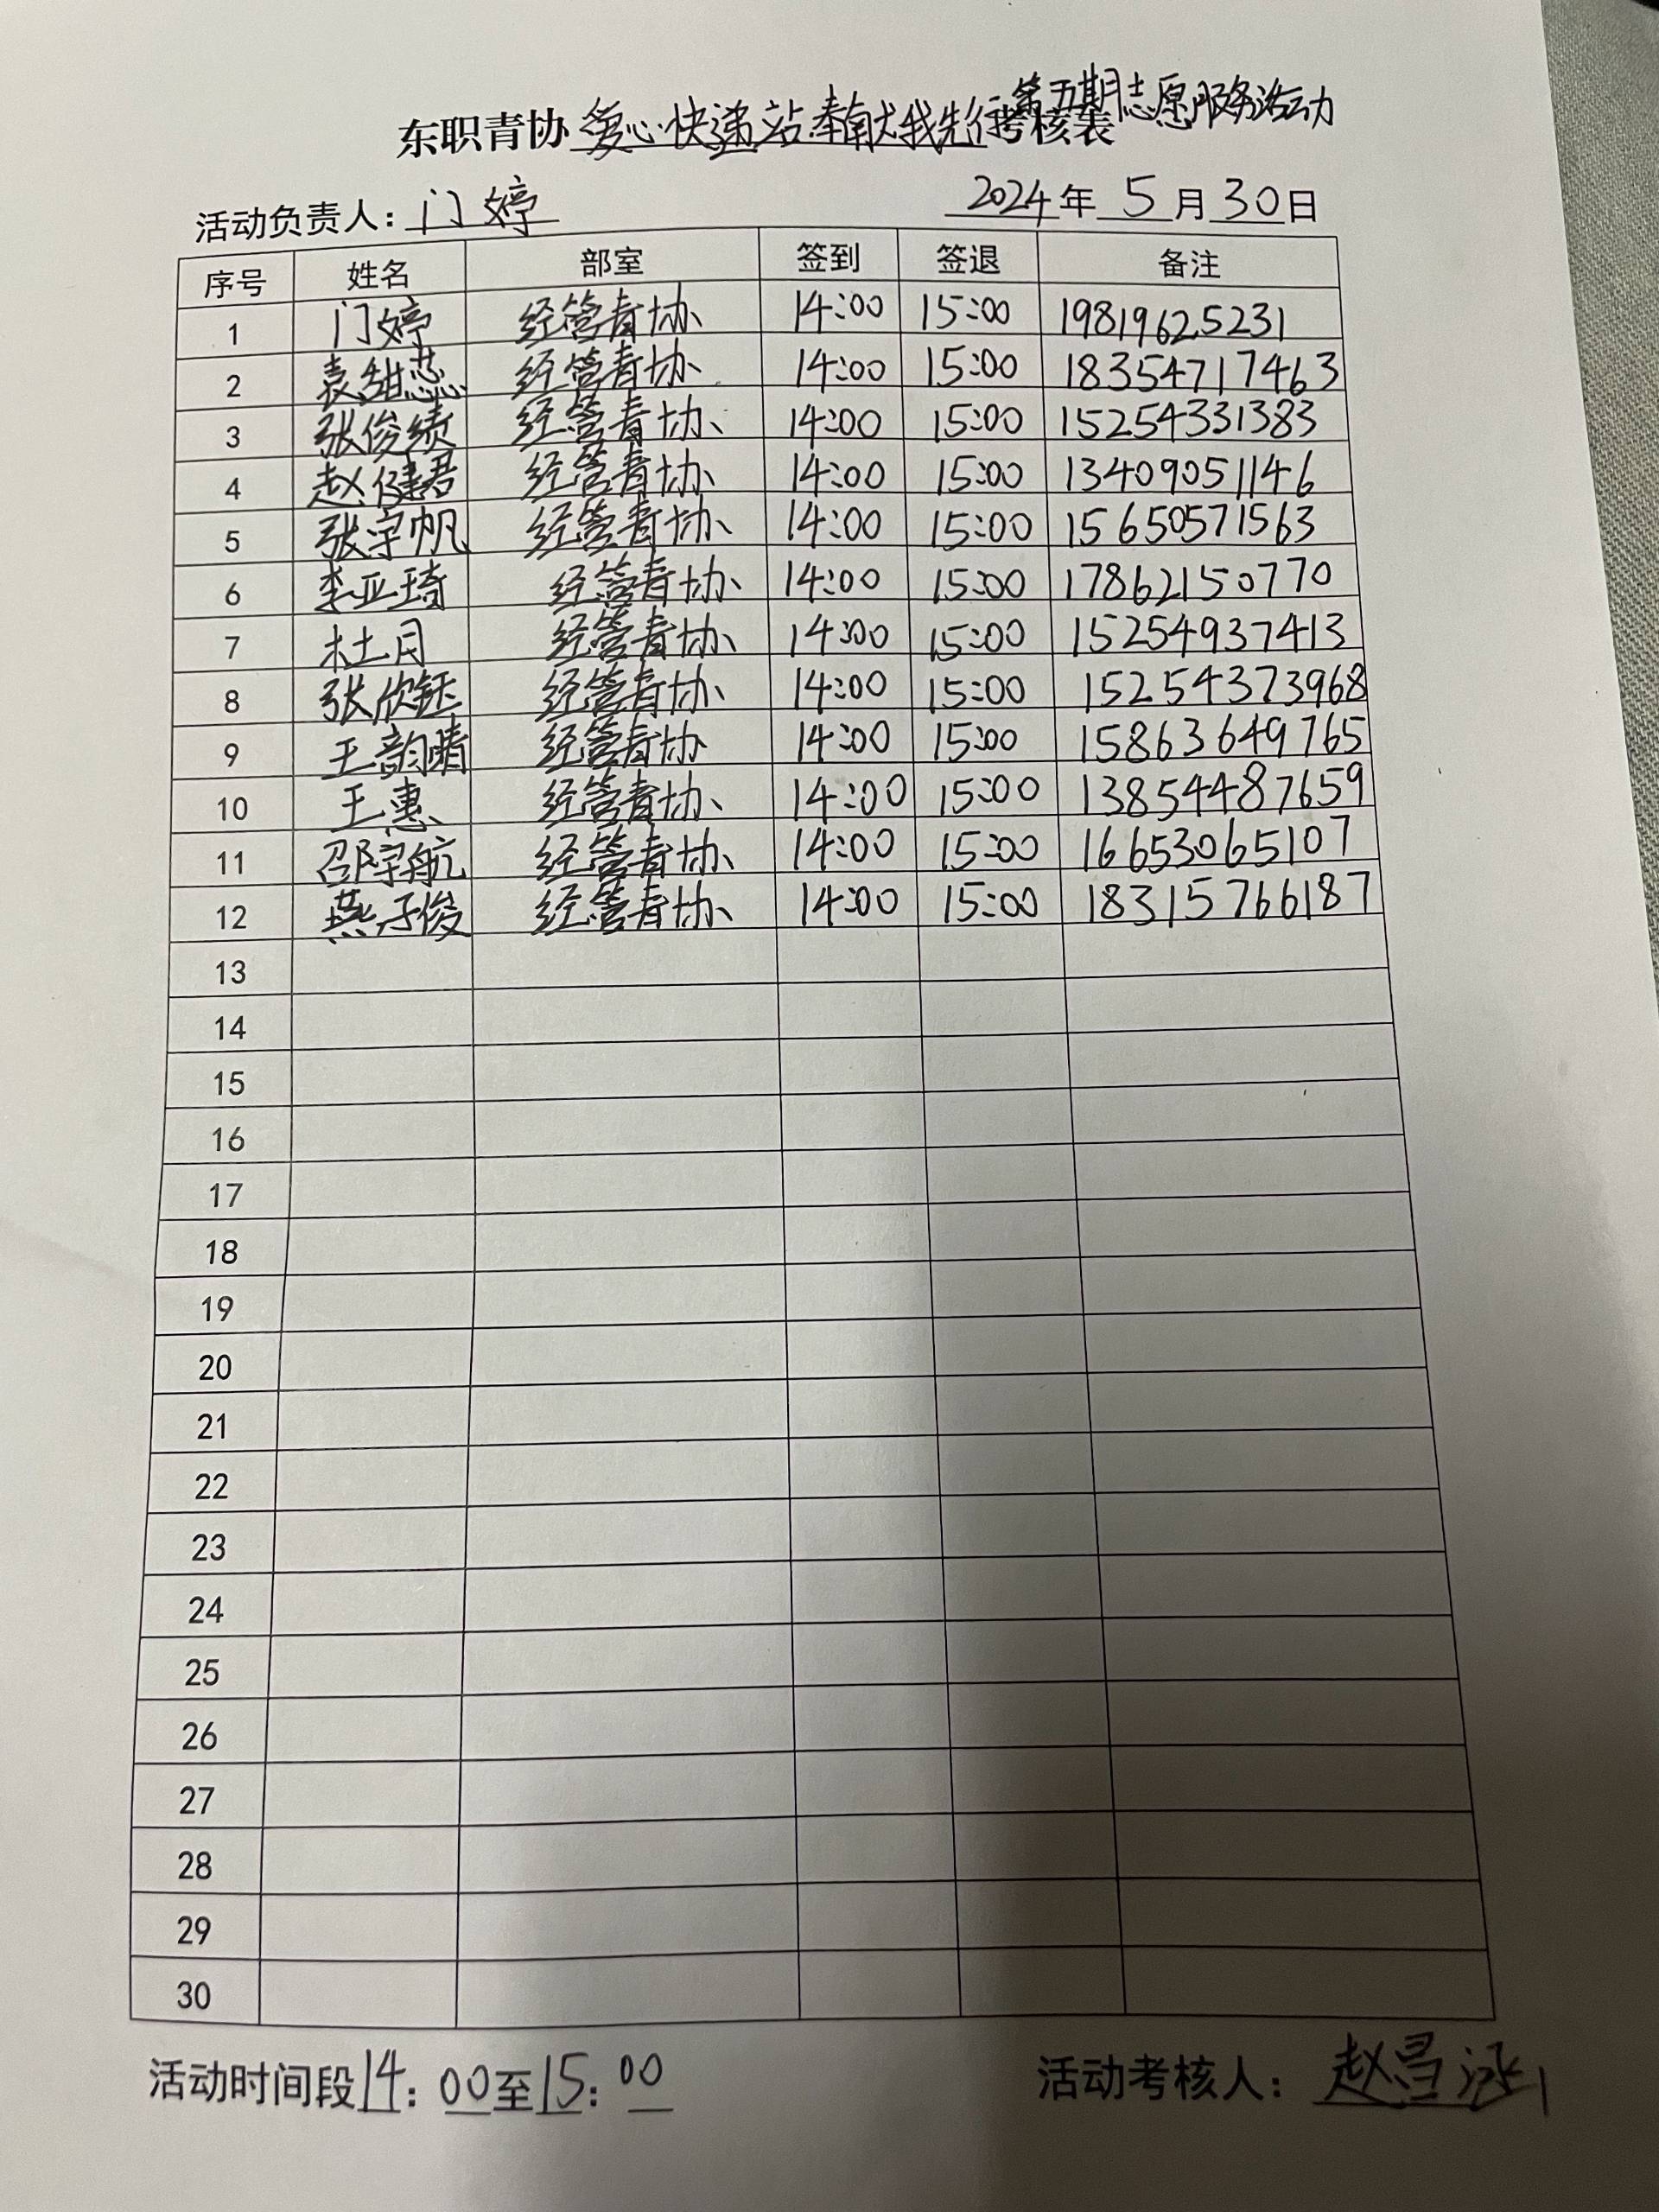 东职青协爱心快递站奉献我先行第五期志愿服务活动考核表
活动负责人：门婷 2024年5月30日
序号 姓名 部室 签到 签退 备注
1 门婷 经管青协 14:00 15:00 19819625231
2 袁绀蕊 经管青协 14:00 15:00 18354717463
3 张俊绩 经管青协 14:00 15:00 15254331383
4 赵健君 经管青协 14:00 15:00 13409051146
5 张宇帆 经管青协 14:00 15:00 15650571563
6 李亚琦 经管青协 14:00 15:00 17862150770
7 杜月 经管青协 14:00 15:00 15254937413
8 张欣钰 经管青协 14:00 15:00 15254373968
9 王韵晴 经管青协 14:00 15:00 15863649765
10 王惠 经管青协 14:00 15:00 13854487659
11 邵宇航 经管青协 14:00 15:00 16653065107
12 燕子俊 经管青协 14:00 15:00 18315766187
13
14
15
16
17
18
19
20
21
22
23
24
25
26
27
28
29
30
活动时间段14:00至15:00 活动考核人：赵昌